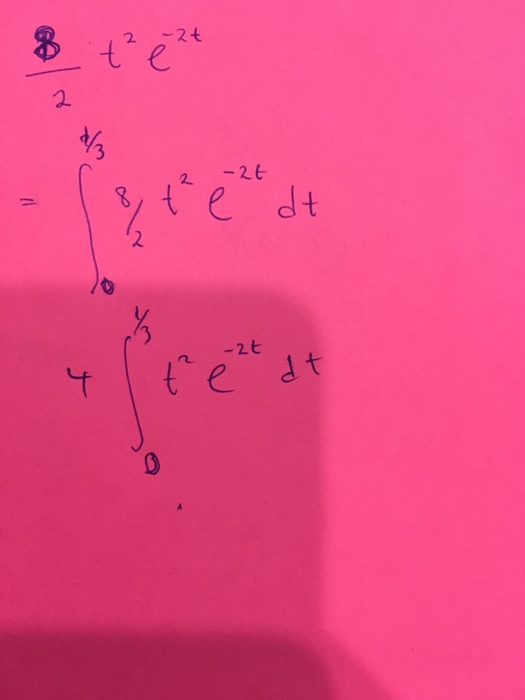 8/2 t² e^-2t
= ∫₀^1/3 8/2 t² e^-2t dt
4 ∫₀^1/3 t² e^-2t dt